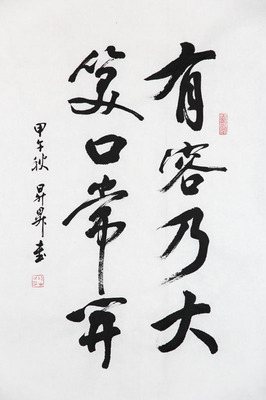 有容乃大
笑口常开
甲午秋昇昇书